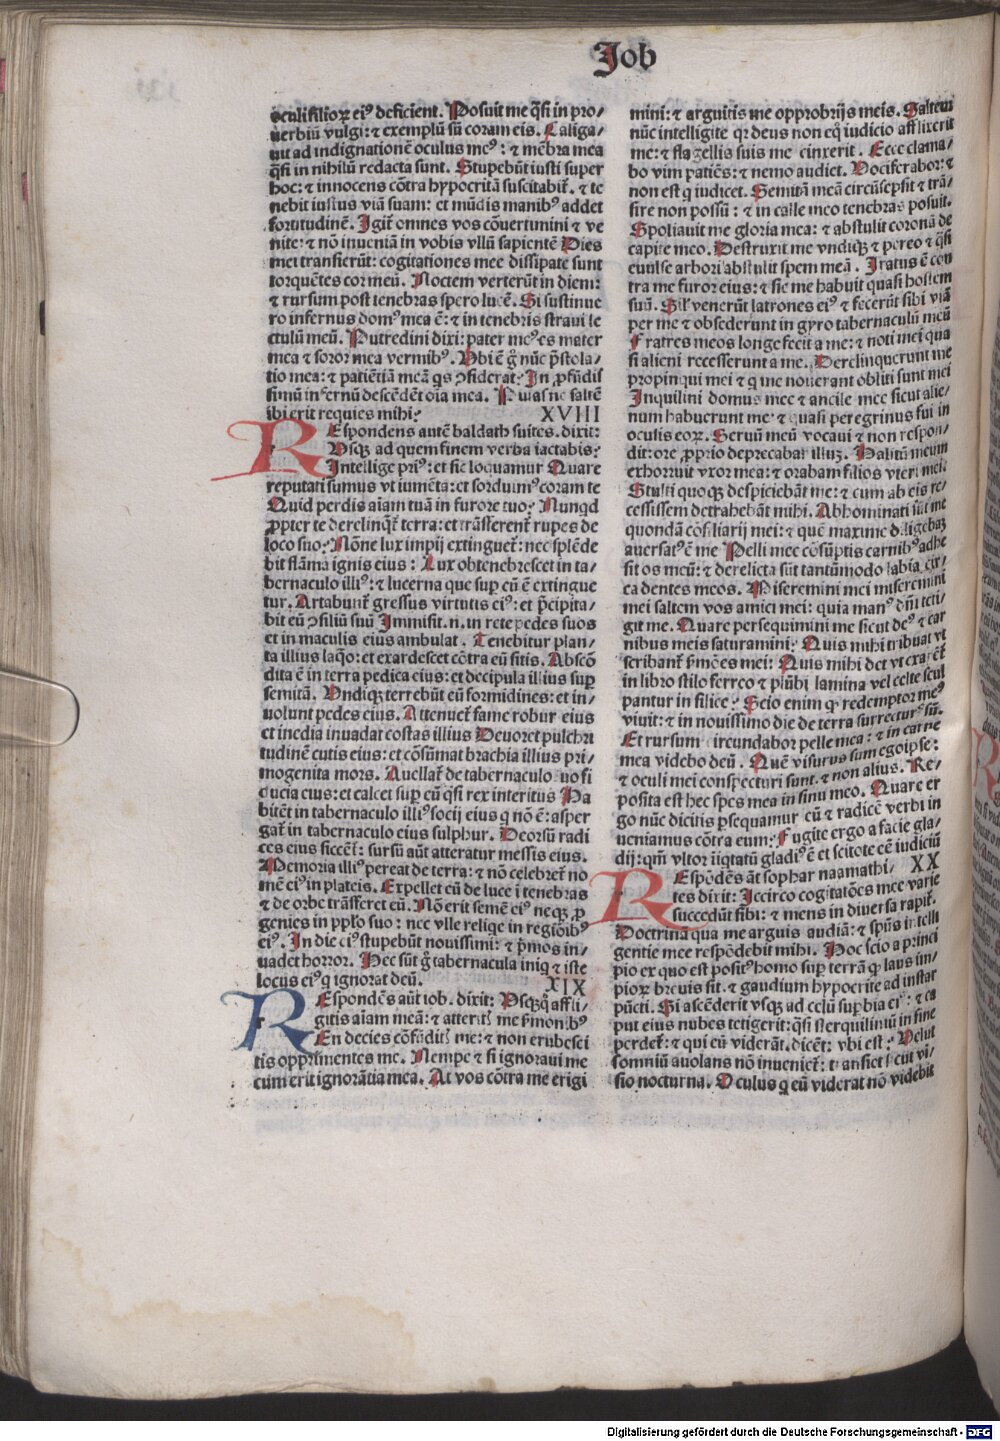 Job
oculi filioꝝ eiꝰ deficient. Posuit me q̄si in pro/
uerbiū vulgi: ⁊ exemplū sū coram eis. Caliga/
uit ad indignationē oculus meꝰ: ⁊ mēbra mea
q̄si in nihilū redacta sunt. Stupebūt iusti super
hoc: ⁊ innocens cōtra hypocritā suscitabit̄. ⁊ te
nebit iustus viā suam: et mūdis manibꝰ addet
fortitudinē. Igit̄ omnes vos cōuertimini ⁊ ve
nite: ⁊ nō inueniā in vobis vllū sapientē Dies
mei transierūt: cogitationes mee dissipate sunt
torquētes cor meū. Noctem verterūt in diem:
⁊ rursum post tenebras spero lucē. Si sustinue
ro infernus domꝰ mea ē: ⁊ in tenebris straui le
ctulū meū. Putredini dixi: pater meꝰ es mater
mea ⁊ soror mea vermibꝰ. Ubi ē g̊ nūc p̄stola/
tio mea: ⁊ patiētiā meā q̇s ꝯsiderat? In ꝓfūdis
simū infernū descēdēt oīa mea. Putas ne saltē
ibi erit requies mihi? XVIII
REspondens autē baldath suites. dixit:
Usqꝫ ad quem finem verba iactabis?
Intellige priꝰ: et sic loquamur Quare
reputati sumus vt iumēta: et sorduimꝰ coram te
Quid perdis aīam tuā in furore tuo? Nunqd
ꝓpter te derelinqt̄ terra: et trāsferent̄ rupes de
loco suo? Nōne lux impij extinguet̄: nec splēde
bit flāma ignis eius: Lux obtenebrescet in ta/
bernaculo illiꝰ: ⁊ lucerna que sup eū ē extingue
tur. Artabunt̄ gressus virtutis eiꝰ: et p̄cipita/
bit eū ꝯsiliū suū Immisit .n. in rete pedes suos
et in maculis eius ambulat. Tenebitur plan/
ta illius laq̊o: et exardescet cōtra eū sitis. Abscō
dita ē in terra pedica eius: et decipula illius sup
semitā. Undiqꝫ terrebūt eū formidines: et in/
uoluunt pedes eius. Attenuet̄ fame robur eius
et inedia inuadat costas illius Deuoret pulchri
tudinē cutis eius: et cōsūmat brachia illius pri/
mogenita mors. Auellat̄ de tabernaculo suo fi
ducia eius: et calcet sup eū q̄si rex interitus Ha
bitēt in tabernaculo illiꝰ socij eius q nō ē: asper
gat̄ in tabernaculo eius sulphur. Deorsū radi
ces eius siccēt: sursū aūt atteratur messis eius.
Memoria illiꝰ pereat de terra: ⁊ nō celebret̄ no
mē eiꝰ in plateis. Expellet eū de luce ī tenebras
⁊ de orbe trāsferet eū. Nō erit semē eiꝰ neqꝫ ꝓ
genies in pplo suo: nec vlle reliqe in regiōibꝰ
eiꝰ. In die eiꝰ stupebūt nouissimi: ⁊ p̄mos in/
uadet horror. Hec sūt g̊ tabernacula iniq ⁊ iste
locus eiꝰ q ignorat deū. XIX
REspondēs aūt iob. dixit: Usqꝫq̊ affli/
gitis aīam meā: ⁊ atteritꝭ me ẜmonibꝰ
En decies cōfūditꝭ me: ⁊ non erubesci
tis opprimentes me. Nempe ⁊ si ignoraui me
cum erit ignorātia mea. At vos cōtra me erigi
mini: ⁊ arguitis me opprobrijs meis. Saltem
nūc intelligite qr deus non eq̊ iudicio afflixerit
me: ⁊ flagellis suis me cinxerit. Ecce clama/
bo vim patiēs: ⁊ nemo audiet. Uociferabor: ⁊
non est q iudicet. Semitā meā circūsepsit ⁊ trā/
sire non possū: ⁊ in calle meo tenebras posuit.
Spoliauit me gloria mea: ⁊ abstulit coronā de
capite meo. Destruxit me vndiqꝫ ⁊ pereo ⁊ q̄si
euulse arbori abstulit spem meā. Iratus ē con
tra me furor eius: ⁊ sic me habuit quasi hostem
suū. Siľ venerūt latrones eiꝰ ⁊ fecerūt sibi viā
per me ⁊ obsederunt in gyro tabernaculū meū
Fratres meos longe fecit a me: ⁊ noti mei qua
si alieni recesserunt a me. Dereliquerunt me
propinqui mei ⁊ q me nouerant obliti sunt mei
Inquilini domus mee ⁊ ancile mee sicut alie/
num habuerunt me: ⁊ quasi peregrinus fui in
oculis eoꝝ. Seruū meū vocaui ⁊ non respon/
dit: ore ꝓprio deprecabar illuꝫ. Halitū meum
exhorruit vxor mea: ⁊ orabam filios vteri mei.
Stulti quoqꝫ despiciebāt me: ⁊ cum ab eis re/
cessissem detrahebāt mihi. Abhominati sūt me
quondā cōsiliarij mei: ⁊ quē maxime diligebaꝫ
auersatꝰ ē me Pelli mee cōsūptis carnibꝰ adhe
sit os meū: ⁊ derelicta sūt tantūmodo labia cir/
ca dentes meos. Miseremini mei miseremini
mei saltem vos amici mei: quia manꝰ dn̄i teti/
git me. Quare persequimini me sicut deꝰ ⁊ car
nibus meis saturamini? Quis mihi tribuat vt
scribant̄ ẜmōes mei: Quis mihi det vt exarēt̄
in libro stilo ferreo ⁊ plūbi lamina vel celte scul
pantur in silice? Scio enim ꝙ redemptor meꝰ
viuit: ⁊ in nouissimo die de terra surrecturꝰ sū.
Et rursum circundabor pelle mea: ⁊ in carne
mea videbo deū. Quē visurus sum ego ipse:
⁊ oculi mei conspecturi sunt. ⁊ non alius. Re/
posita est hec spes mea in sinu meo. Quare er
go nūc dicitis ꝑsequamur eū ⁊ radicē verbi in
ueniamus cōtra eum: Fugite ergo a facie gla/
dij: qm̄ vltor iiqtatū gladiꝰ ē et scitote eē iudiciū
REspōdēs aūt sophar naamathi/ XX
tes dixit: Iccirco cogitatōes mee varie
succedūt sibi: ⁊ mens in diuersa rapit̄.
Doctrinā qua me arguis audiā: ⁊ spūs intelli
gentie mee respōdebit mihi. Hoc scio a princi
pio ex quo est positꝰ homo sup terrā ꝙ laus im/
pioꝝ breuis sit. ⁊ gaudium hypocrite ad instar
pūcti. Si ascēderit vsqꝫ ad celū supbia eiꝰ: ⁊ ca
put eius nubes tetigerit: q̄si sterquiliniū in fine
perdet̄: ⁊ qui eū viderāt. dicēt: vbi est? Uelut
somniū auolans nō inueniet̄: transiet sicut vi/
sio nocturna. Oculus q eū viderat nō videbit
Digitalisierung gefördert durch die Deutsche Forschungsgemeinschaft - DFG